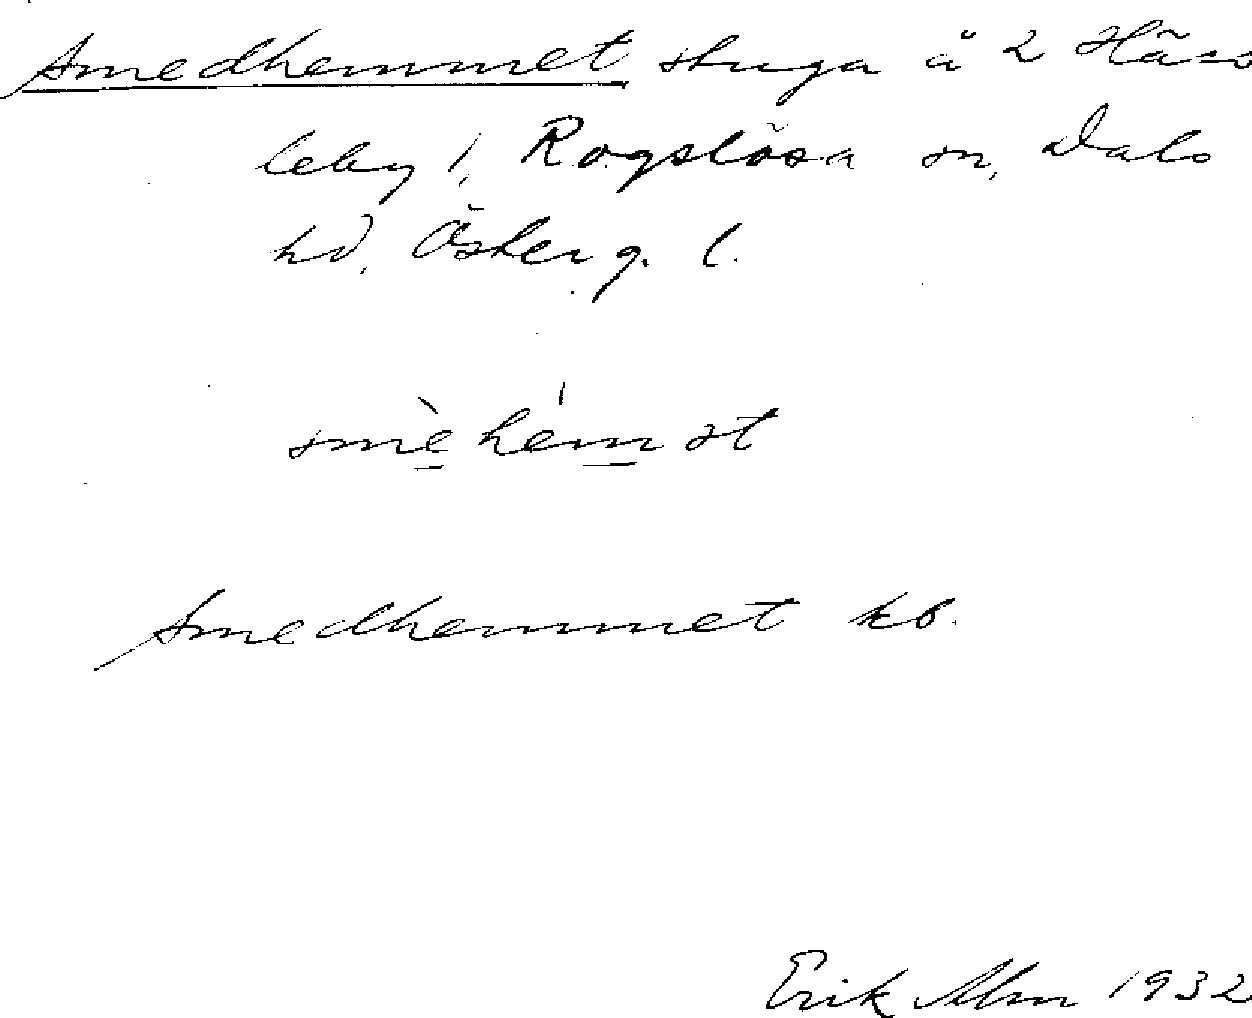 Smedhemmet stuga å 2 Häss
leby 1, Rogslösa sn, Dals
hd, Österg. l.
smè hémət
Smedhemmet kb.
Erik Alm 1932